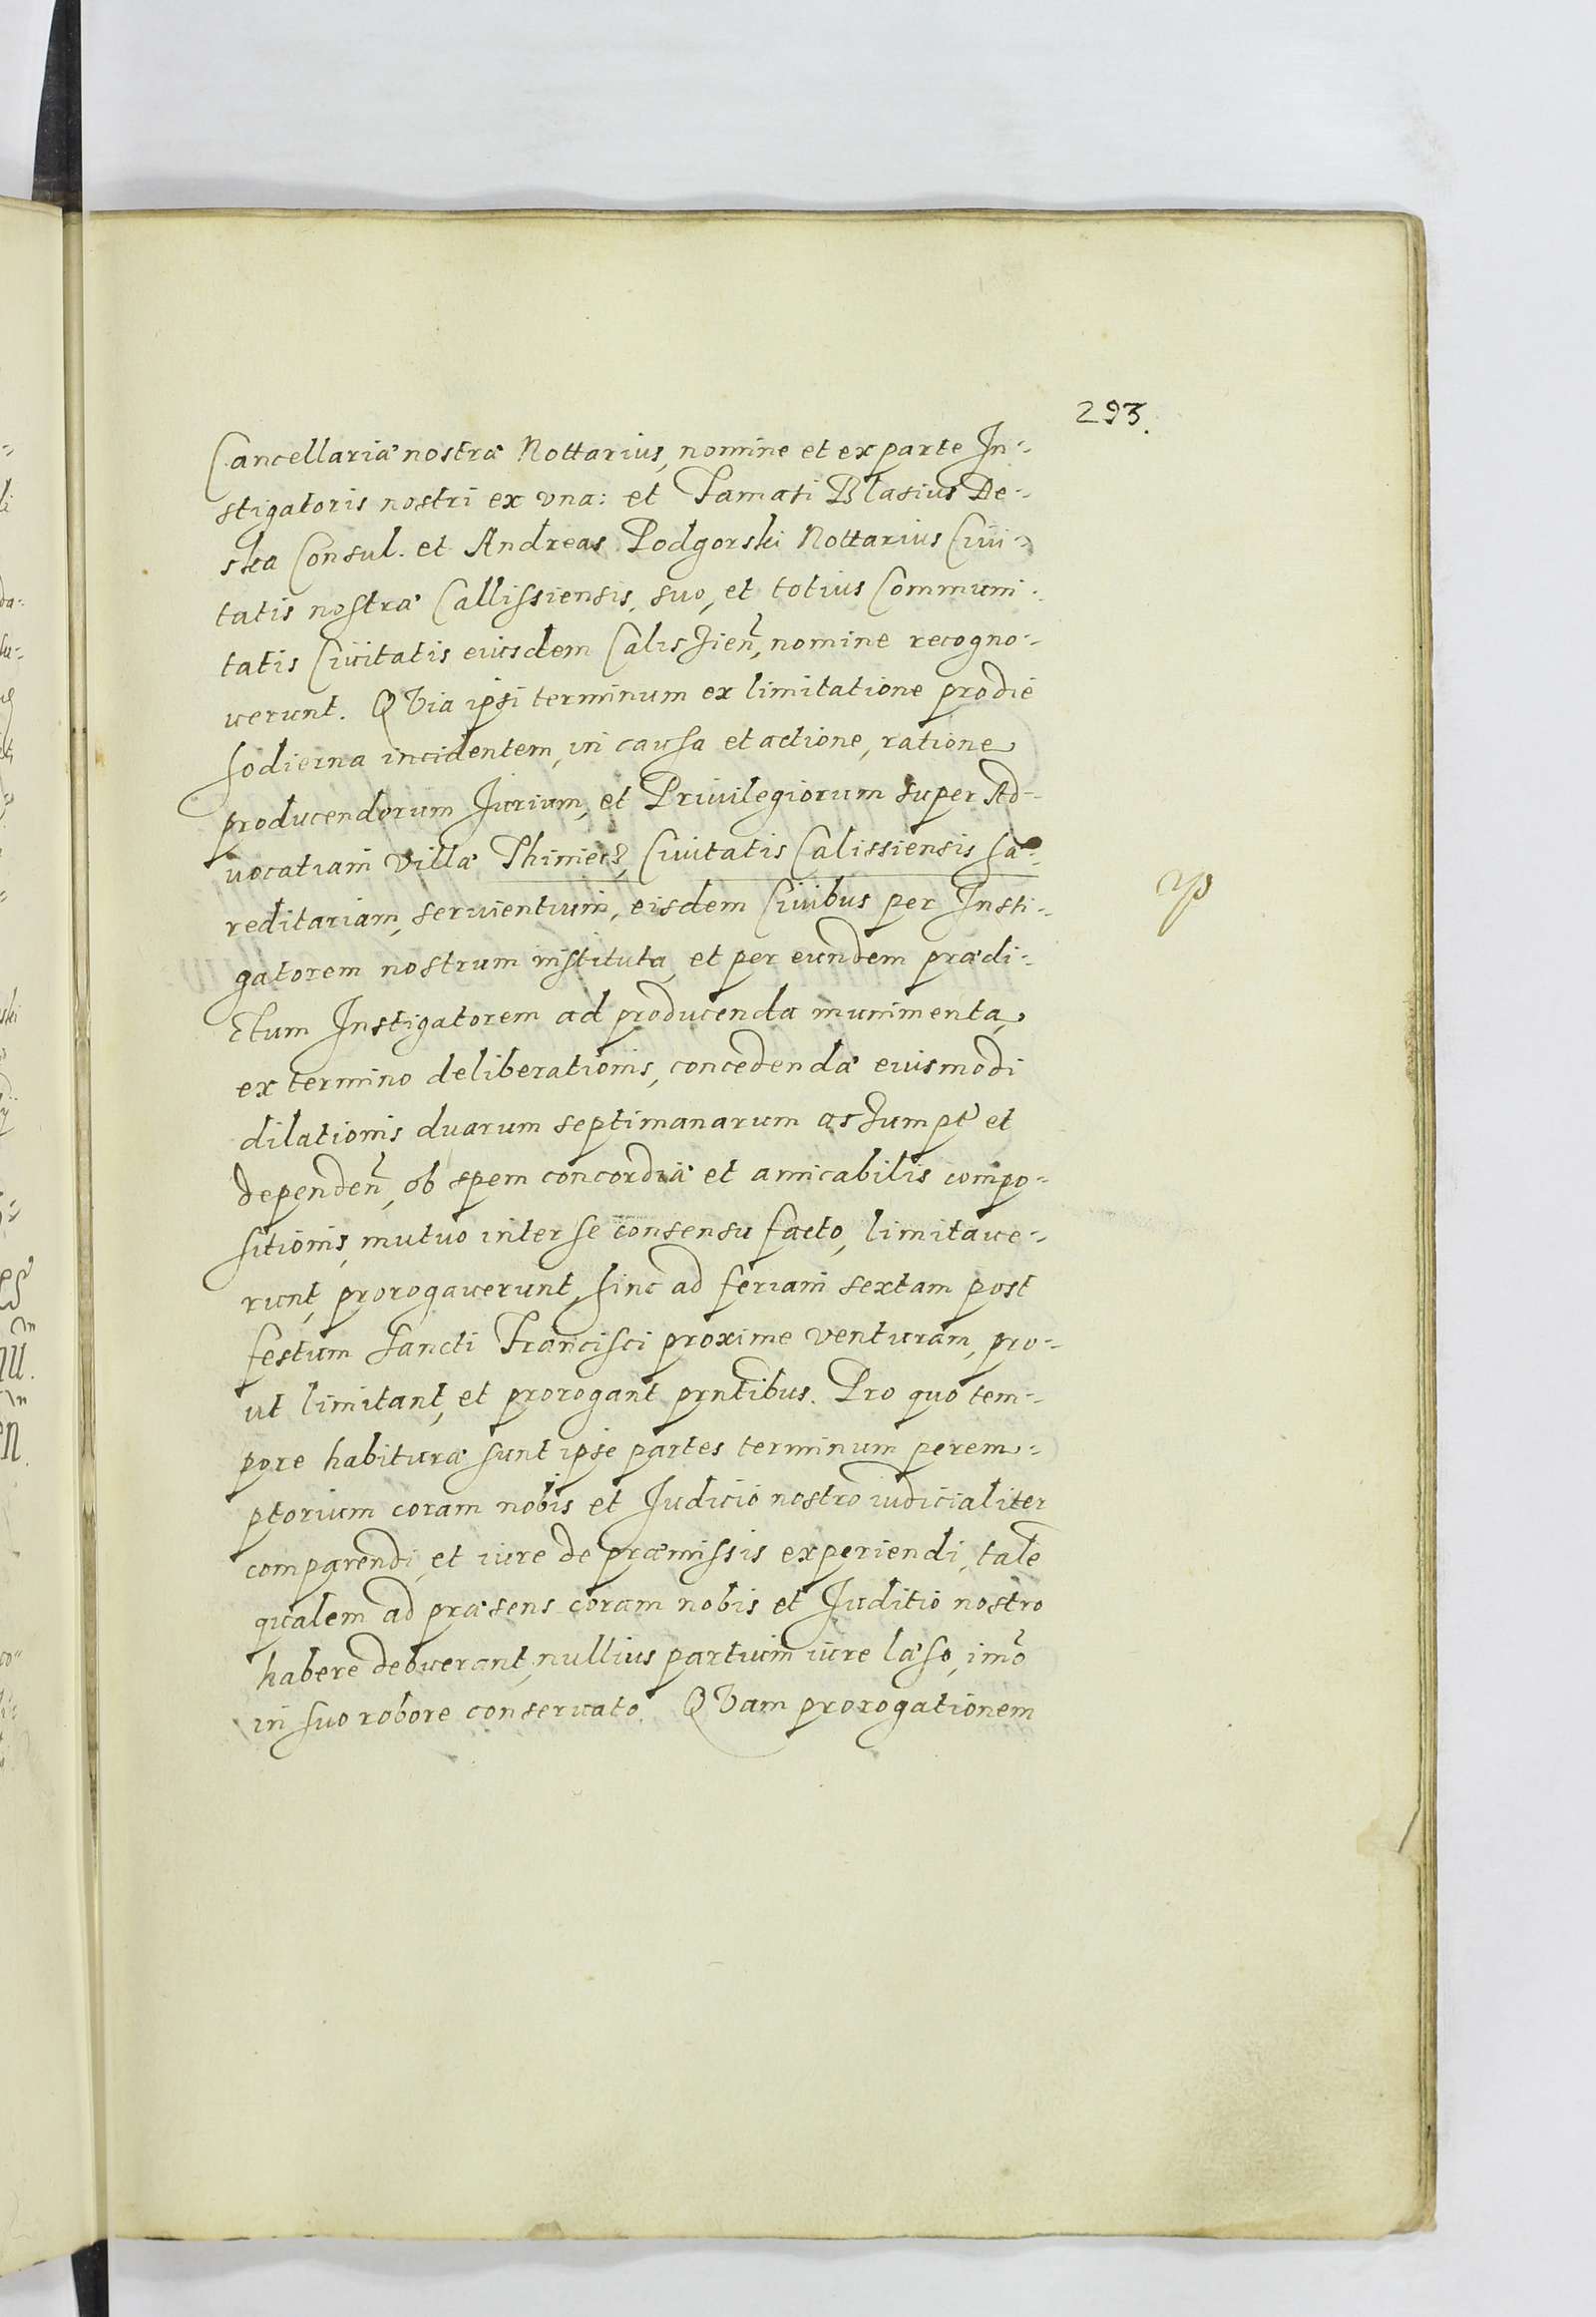 293.
Cancellariæ nostræ Nottarius, nomine et ex parte In-
stigatoris nostri ex vna: et Famati Blasius De-
ska Consul. et Andreas Podgorski Nottarius Ciui-
tatis nostræ Callissiensis, suo, et totius Communi-
tatis Ciuitatis eiusdem Calissien̄, nomine recogno-
uerunt. QVia ipsi terminum ex limitatione pro die
hodierna incidentem, in causa et actione, ratione
producendorum Jurium, et Priuilegiorum super Ad-
uocatiam Villæ Thiniecz, Ciuitatis Calissiensis hæ-
reditariam, seruientium, eisdem Ciuibus per Insti-
gatorem nostrum instituta, et per eundem prædi-
ctum Instigatorem ad producenda munimenta,
ex termino deliberationis, concedendæ eiusmodi
dilationis duarum septimanarum assumpt' et
dependen̄, ob spem concordiæ et amicabilis compo-
sitionis, mutuo inter se consensu facto, limitaue-
runt, prorogauerunt, hinc ad feriam sextam post
festum Sancti Francisci proxime venturam, pro-
ut limitant, et prorogant prntibus. Pro quo tem-
pore habituræ sunt ipsæ partes terminum perem-
ptorium coram nobis et Judicio nostro iudicialiter
comparendi, et iure de præmissis experiendi, tale
qualem ad præsens coram nobis et Juditio nostro
habere debuerant, nullius partium iure læso, imo
in suo robore conseruato. QVam prorogationem